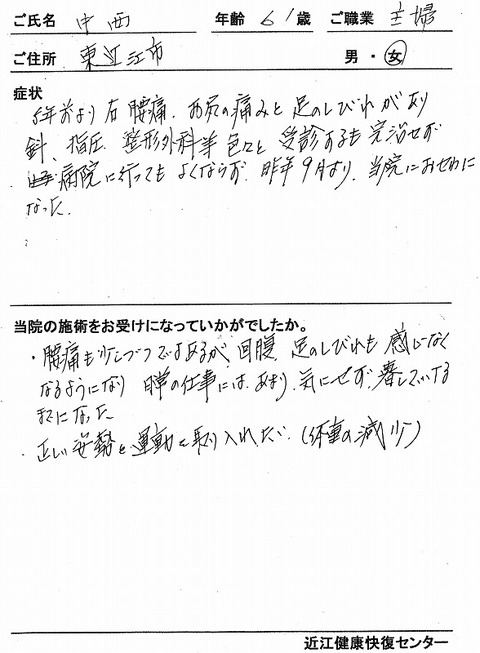 ご氏名 中西 年齢 61歳 ご職業 主婦
ご住所 東近江市 男・女
症状
5年前より右腰痛、お尻の痛みと足のしびれがあり
針、指圧、整形外科等色々と受診するも完治せず
病院に行ってもよくならず、昨年9月より、当院におせわに
なった。
当院の施術をお受けになっていかがでしたか。
・腰痛も少しづつではあるが、回腹、足のしびれも感じなく
なるようになり 日常の仕事には、あまり、気にせず、暮していける
までになった
・正しい姿勢と運動を取り入れたい。(体重の減少)
近江健康快復センター